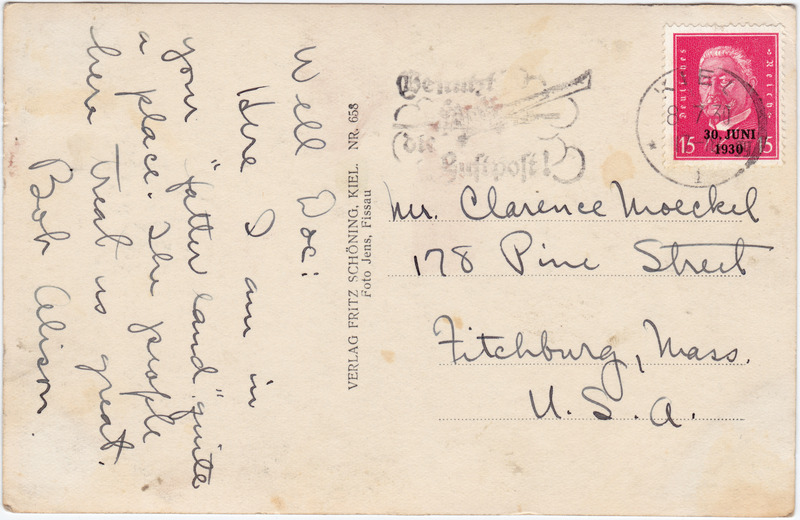 Well Doc:
Here I am in
your "fatter land" quite
a place. The people
here treat us great.
Bob Alison.
VERLAG FRITZ SCHÖNING, KIEL. NR. 658
Foto Jens, Fissau
Benutzt
die
Luftpost!
Deutsches Reich
15 15
30. JUNI
1930
Mr. Clarence Moeckel
178 Pine Street
Fitchburg, Mass.
U. S. A.